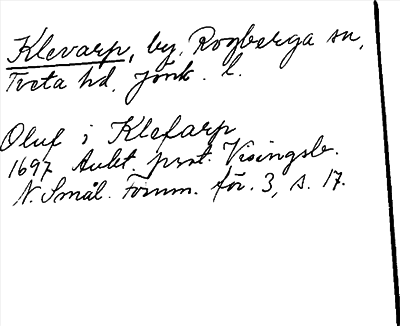 Klevarp, by, Rogberga sn,
Tveta hd. Jönk. l.
Oluf i Klefarp
1697 Aukt. prot. Visingsb.
N. Smål. Fornm. för. 3, s. 17.